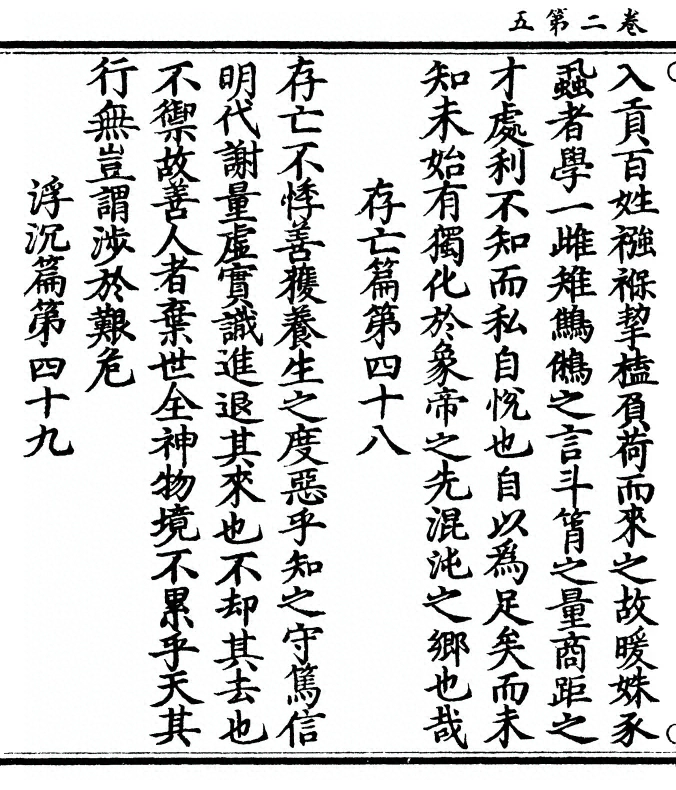 卷二第五
入貢百姓襁褓挈榼負荷而來之故暖姝豕
蝨者學一雌雄鷦鵬之言斗筲之量商距之
才處利不知而私自悅也自以爲足矣而未
知未始有獨化於象帝之先混沌之鄉也哉
存亡篇第四十八
存亡不悸善穫養生之度惡乎知之守篤信
明代謝量虛實識進退其來也不却其去也
不禦故善人者棄世全神物境不累乎天其
行無豈謂涉於艱危
浮沉篇第四十九